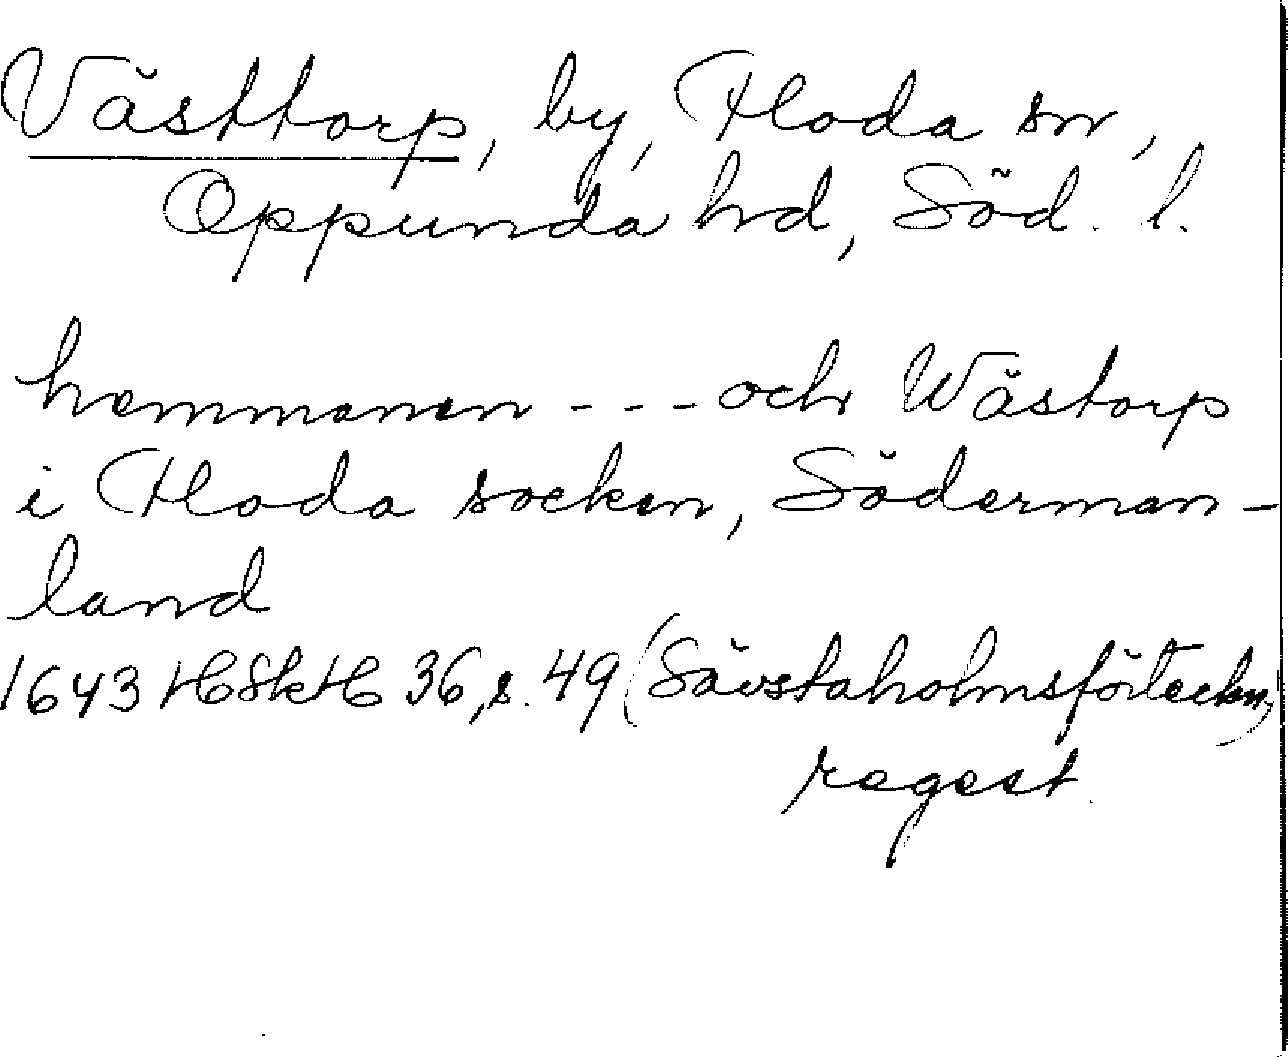 Västtorp, by, Floda sn,
Oppunda hd, Söd. l.
hemmanen - - - och Wästorp
i Floda socken, Söderman-
land
1643 HSkH 36, s. 49 (Sävstaholmsförteckn.)
regest.